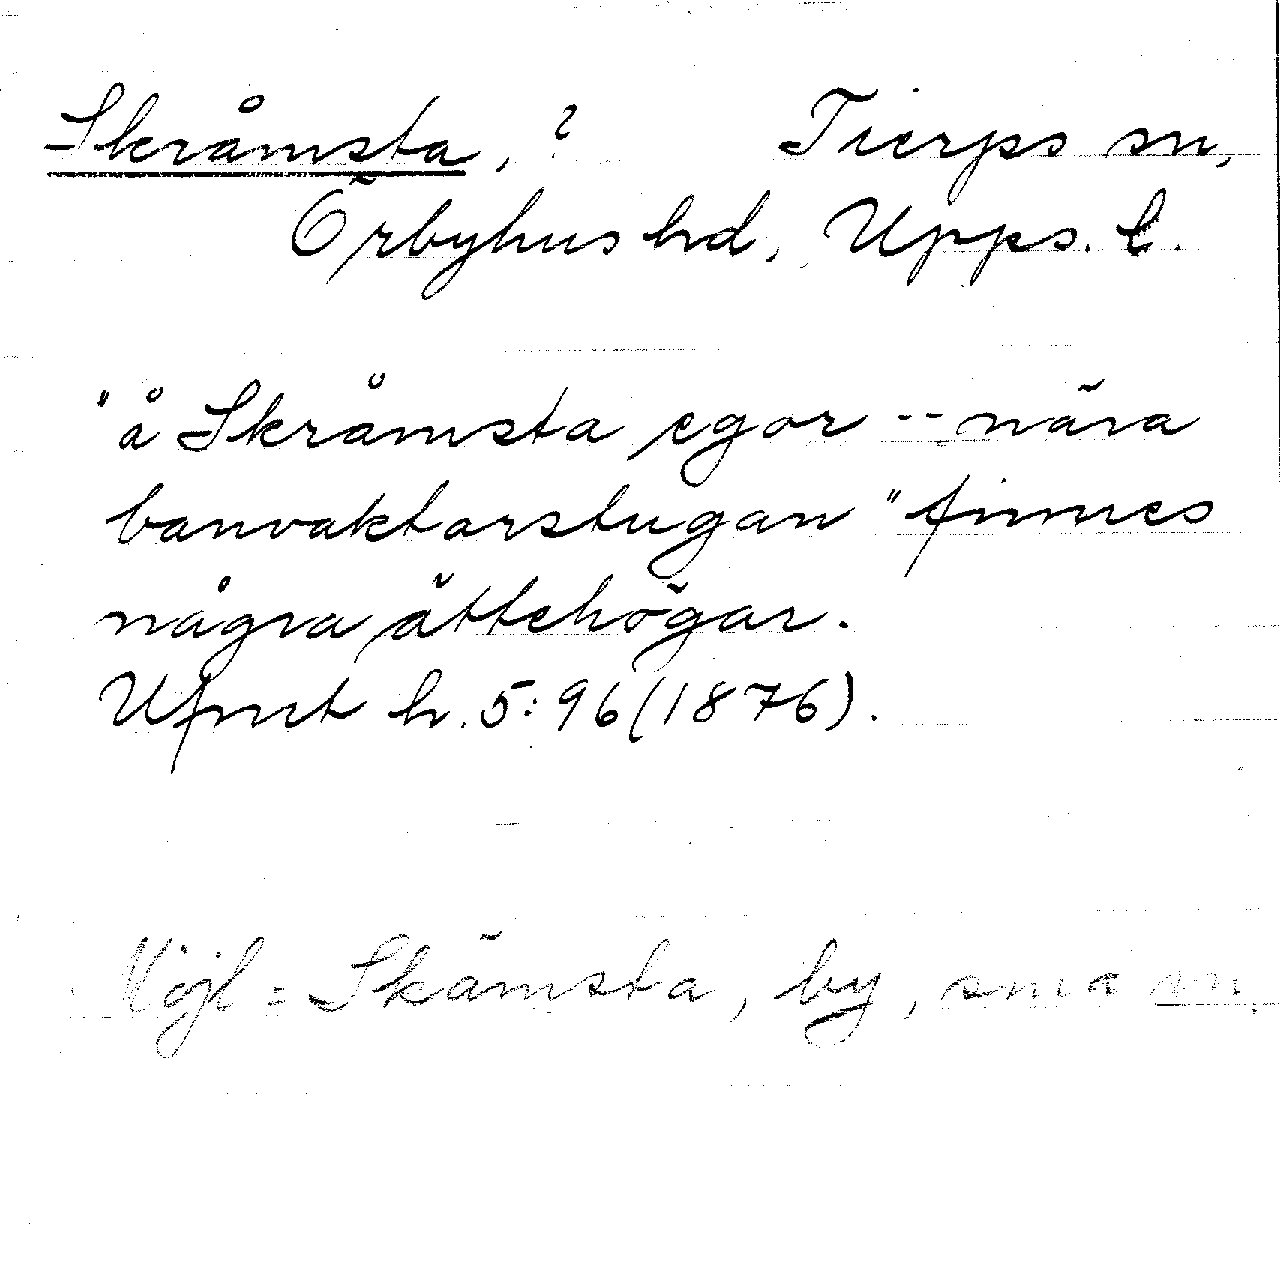 Skråmsta, ? Tierps sn,
Örbyhus hd, Upps. l.
"å Skråmsta egor -- nära
banvaktarstugan" finnes
några ättehögar.
Ufmt h. 5:96 (1876).
Möjl = Skämsta, by, sma sn.